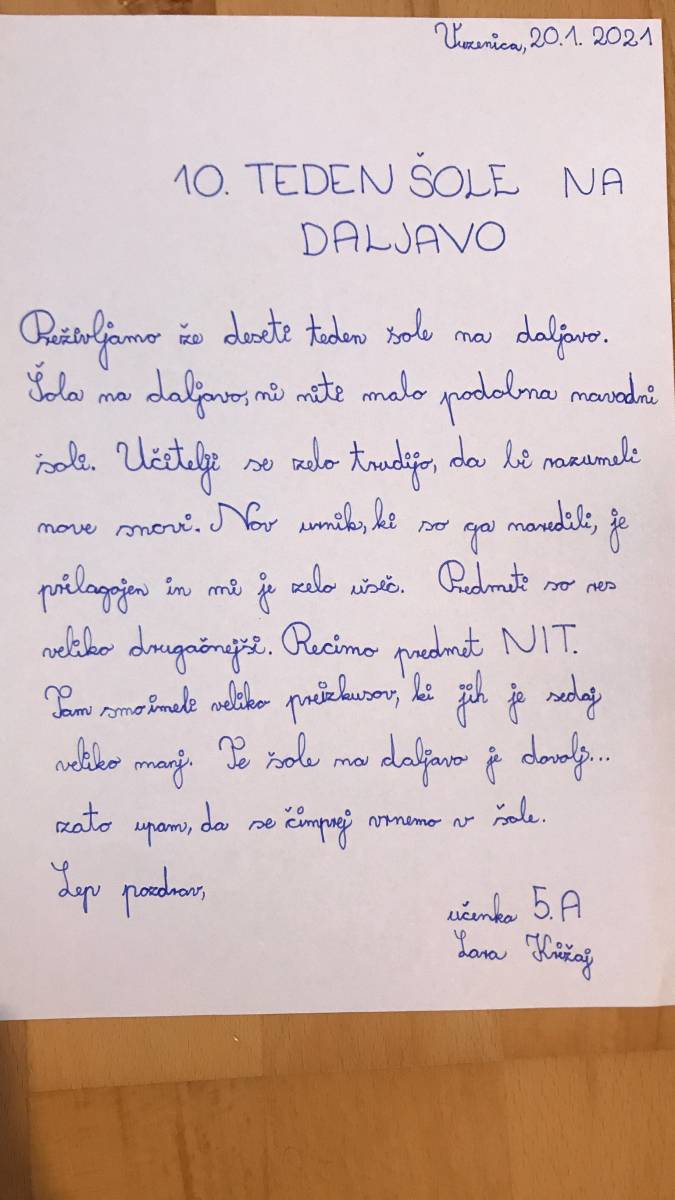 Vuzenica, 20.1. 2021
10. TEDEN ŠOLE NA
DALJAVO
Preživljamo že deseti teden šole na daljavo.
Šola na daljavo, ni niti malo podobna navadni
šoli. Učitelji se zelo trudijo, da bi razumeli
nove snovi. Nov urnik, ki so ga naredili, je
prilagojen in mi je zelo všeč. Predmeti so res
veliko drugačnejši. Recimo predmet NIT.
Tam smo imeli veliko preizkusov, ki jih je sedaj
veliko manj. Te šole na daljavo je dovolj...
zato upam, da se čimprej vrnemo v šole.
Lep pozdrav,
učenka 5. A
Lara Križaj